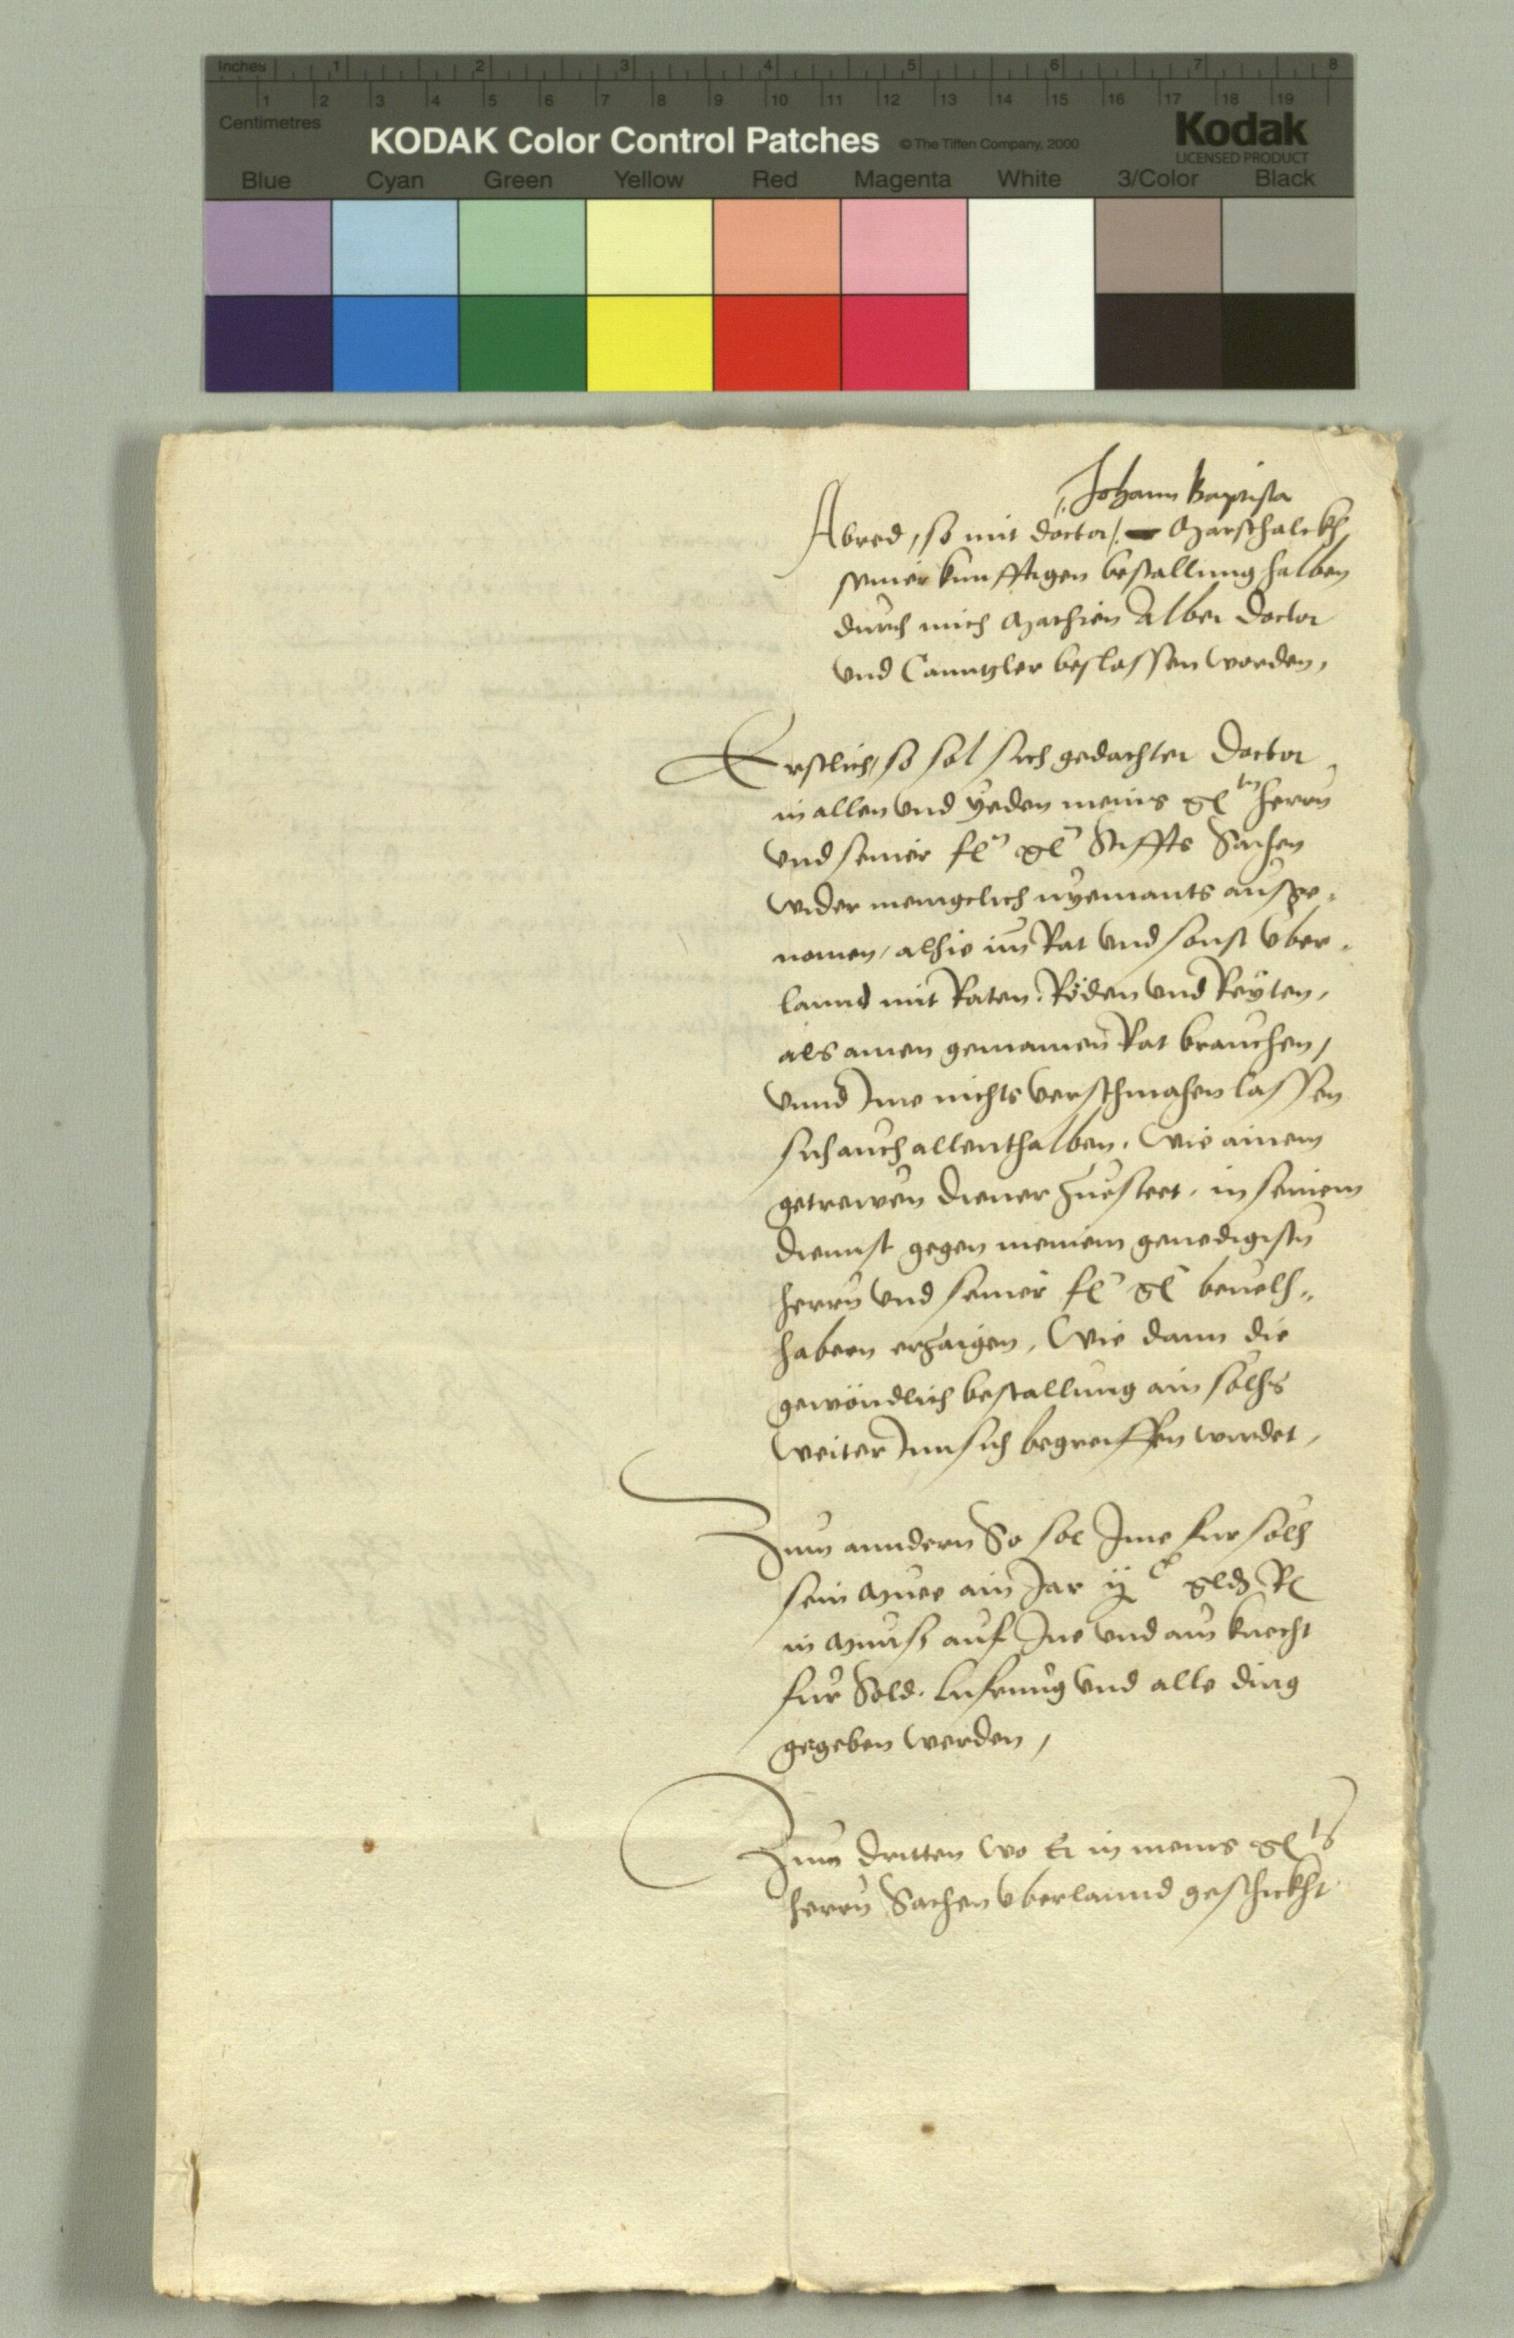 Inches 1 2 3 4 5 6 7 8
1 2 3 4 5 6 7 8 9 10 11 12 13 14 15 16 17 18 19
Centimetres
KODAK Color Control Patches © The Tiffen Company, 2000 Kodak
LICENSED PRODUCT
Blue Cyan Green Yellow Red Magenta White 3/Color Black
Johann Baptista
Abred, so mit doctor Marschalckh
seiner kunfftigen bestallung halben
durch mich Mathien Alber Doctor
vnd Canntzler beslossen worden,
Erstlich, so sol sich gedachter Doctor
in allen vnd yeden meins g(ten) herrn
vnd seiner f. g. Stiffts Sachen
wider menigclich nyemants ausge-
nomen, alhie im Rat vnd sonst vber-
lannd mit Raten, Reden vnd Reyten,
als ainen gemainen Rat brauchen,
vnnd Ime nichts verschmahen lassen
sich auch allenthalben, wie ainem
getrewen diener zuesteet, in seinem
diennst gegen meinem genedigistn
herrn vnd seiner f. g. beuelh-
habern erzaigen, Wie dann die
gewöndlich bestallung ain solhs
weiter Inn sich begreiffen wirdet,
Zum anndern So sol Ime fur solh
sein Muee ain Jar ij C gld R
in Munss auf Ine vnd ain knecht
fur Sold, Lifrung vnd alle ding
gegeben werden,
Zum dritten wo Er in meins g(ts)
herrn Sachen vberlannd geschickht